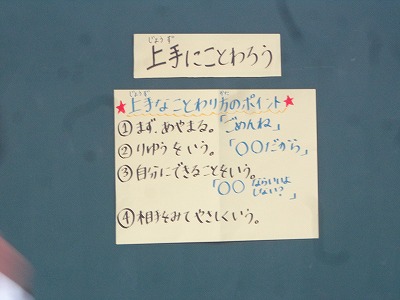 じょうず
上手にことわろう
じょうず かた
★上手なことわり方のポイント★
①まず、あやまる。「ごめんね」
②りゆうをいう。「〇〇だから」
③自分にできることをいう。
「〇〇ならいいよ